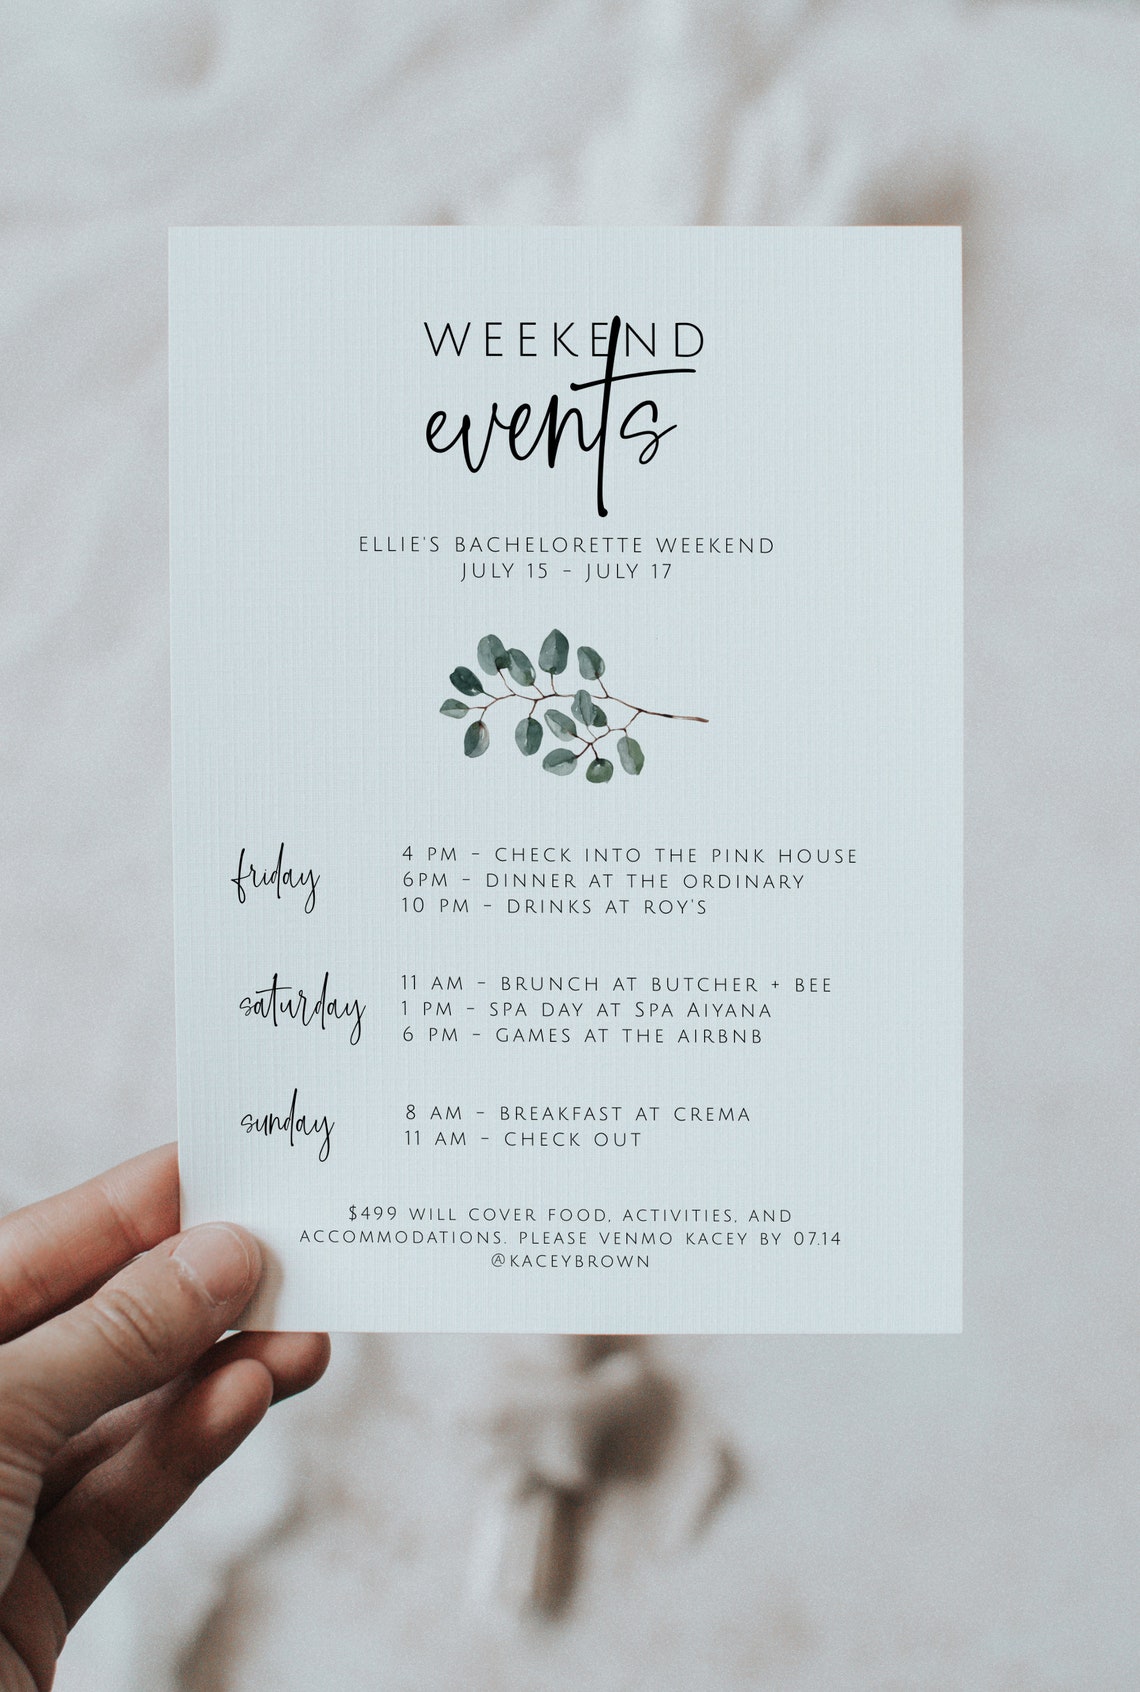 WEEKEND
events
ELLIE'S BACHELORETTE WEEKEND
JULY 15 - JULY 17
friday
4 PM - CHECK INTO THE PINK HOUSE
6PM - DINNER AT THE ORDINARY
10 PM - DRINKS AT ROY'S
saturday
11 AM - BRUNCH AT BUTCHER + BEE
1 PM - SPA DAY AT SPA AIYANA
6 PM - GAMES AT THE AIRBNB
sunday
8 AM - BREAKFAST AT CREMA
11 AM - CHECK OUT
$499 WILL COVER FOOD, ACTIVITIES, AND
ACCOMMODATIONS. PLEASE VENMO KACEY BY 07.14
@KACEYBROWN